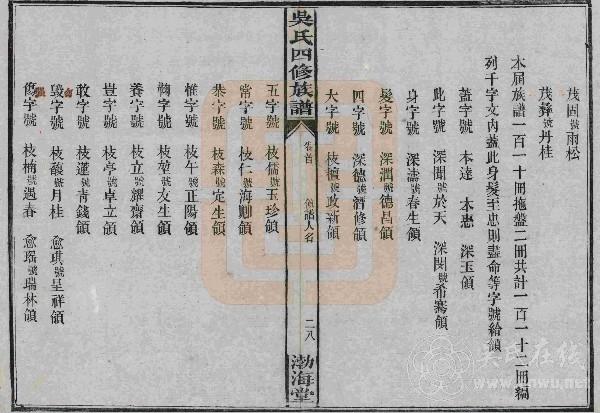 茂固號雨松
茂彝號丹桂
本屆族譜一百一十冊拖盤二冊共計一百一十二冊編
列千字文內蓋此身髮至忠則盡命等字號給領
蓋字號 本達 本惠 深玉領
此字號 深開號於天 深閔號希騫領
身字號 深濤號春生領
髮字號 深潤號德昌領
四字號 深德號濟修領
大字號 枝檀號政新領
吳氏四修族譜
卷首 領譜人名
二八
渤海堂
五字號 枝儒號玉珍領
常字號 枝仁號海卿領
恭字號 枝森號定生領
惟字號 枝午號正陽領
鞠字號 枝堃號友生領
養字號 枝立號耀齋領
豈字號 枝亭號卓立領
敢字號 枝蓬號青錢領
毀字號 枝馥號月桂 愈琪號呈祥領
傷字號 枝楠號遇春 愈瑤號瑞林領
吳氏在线